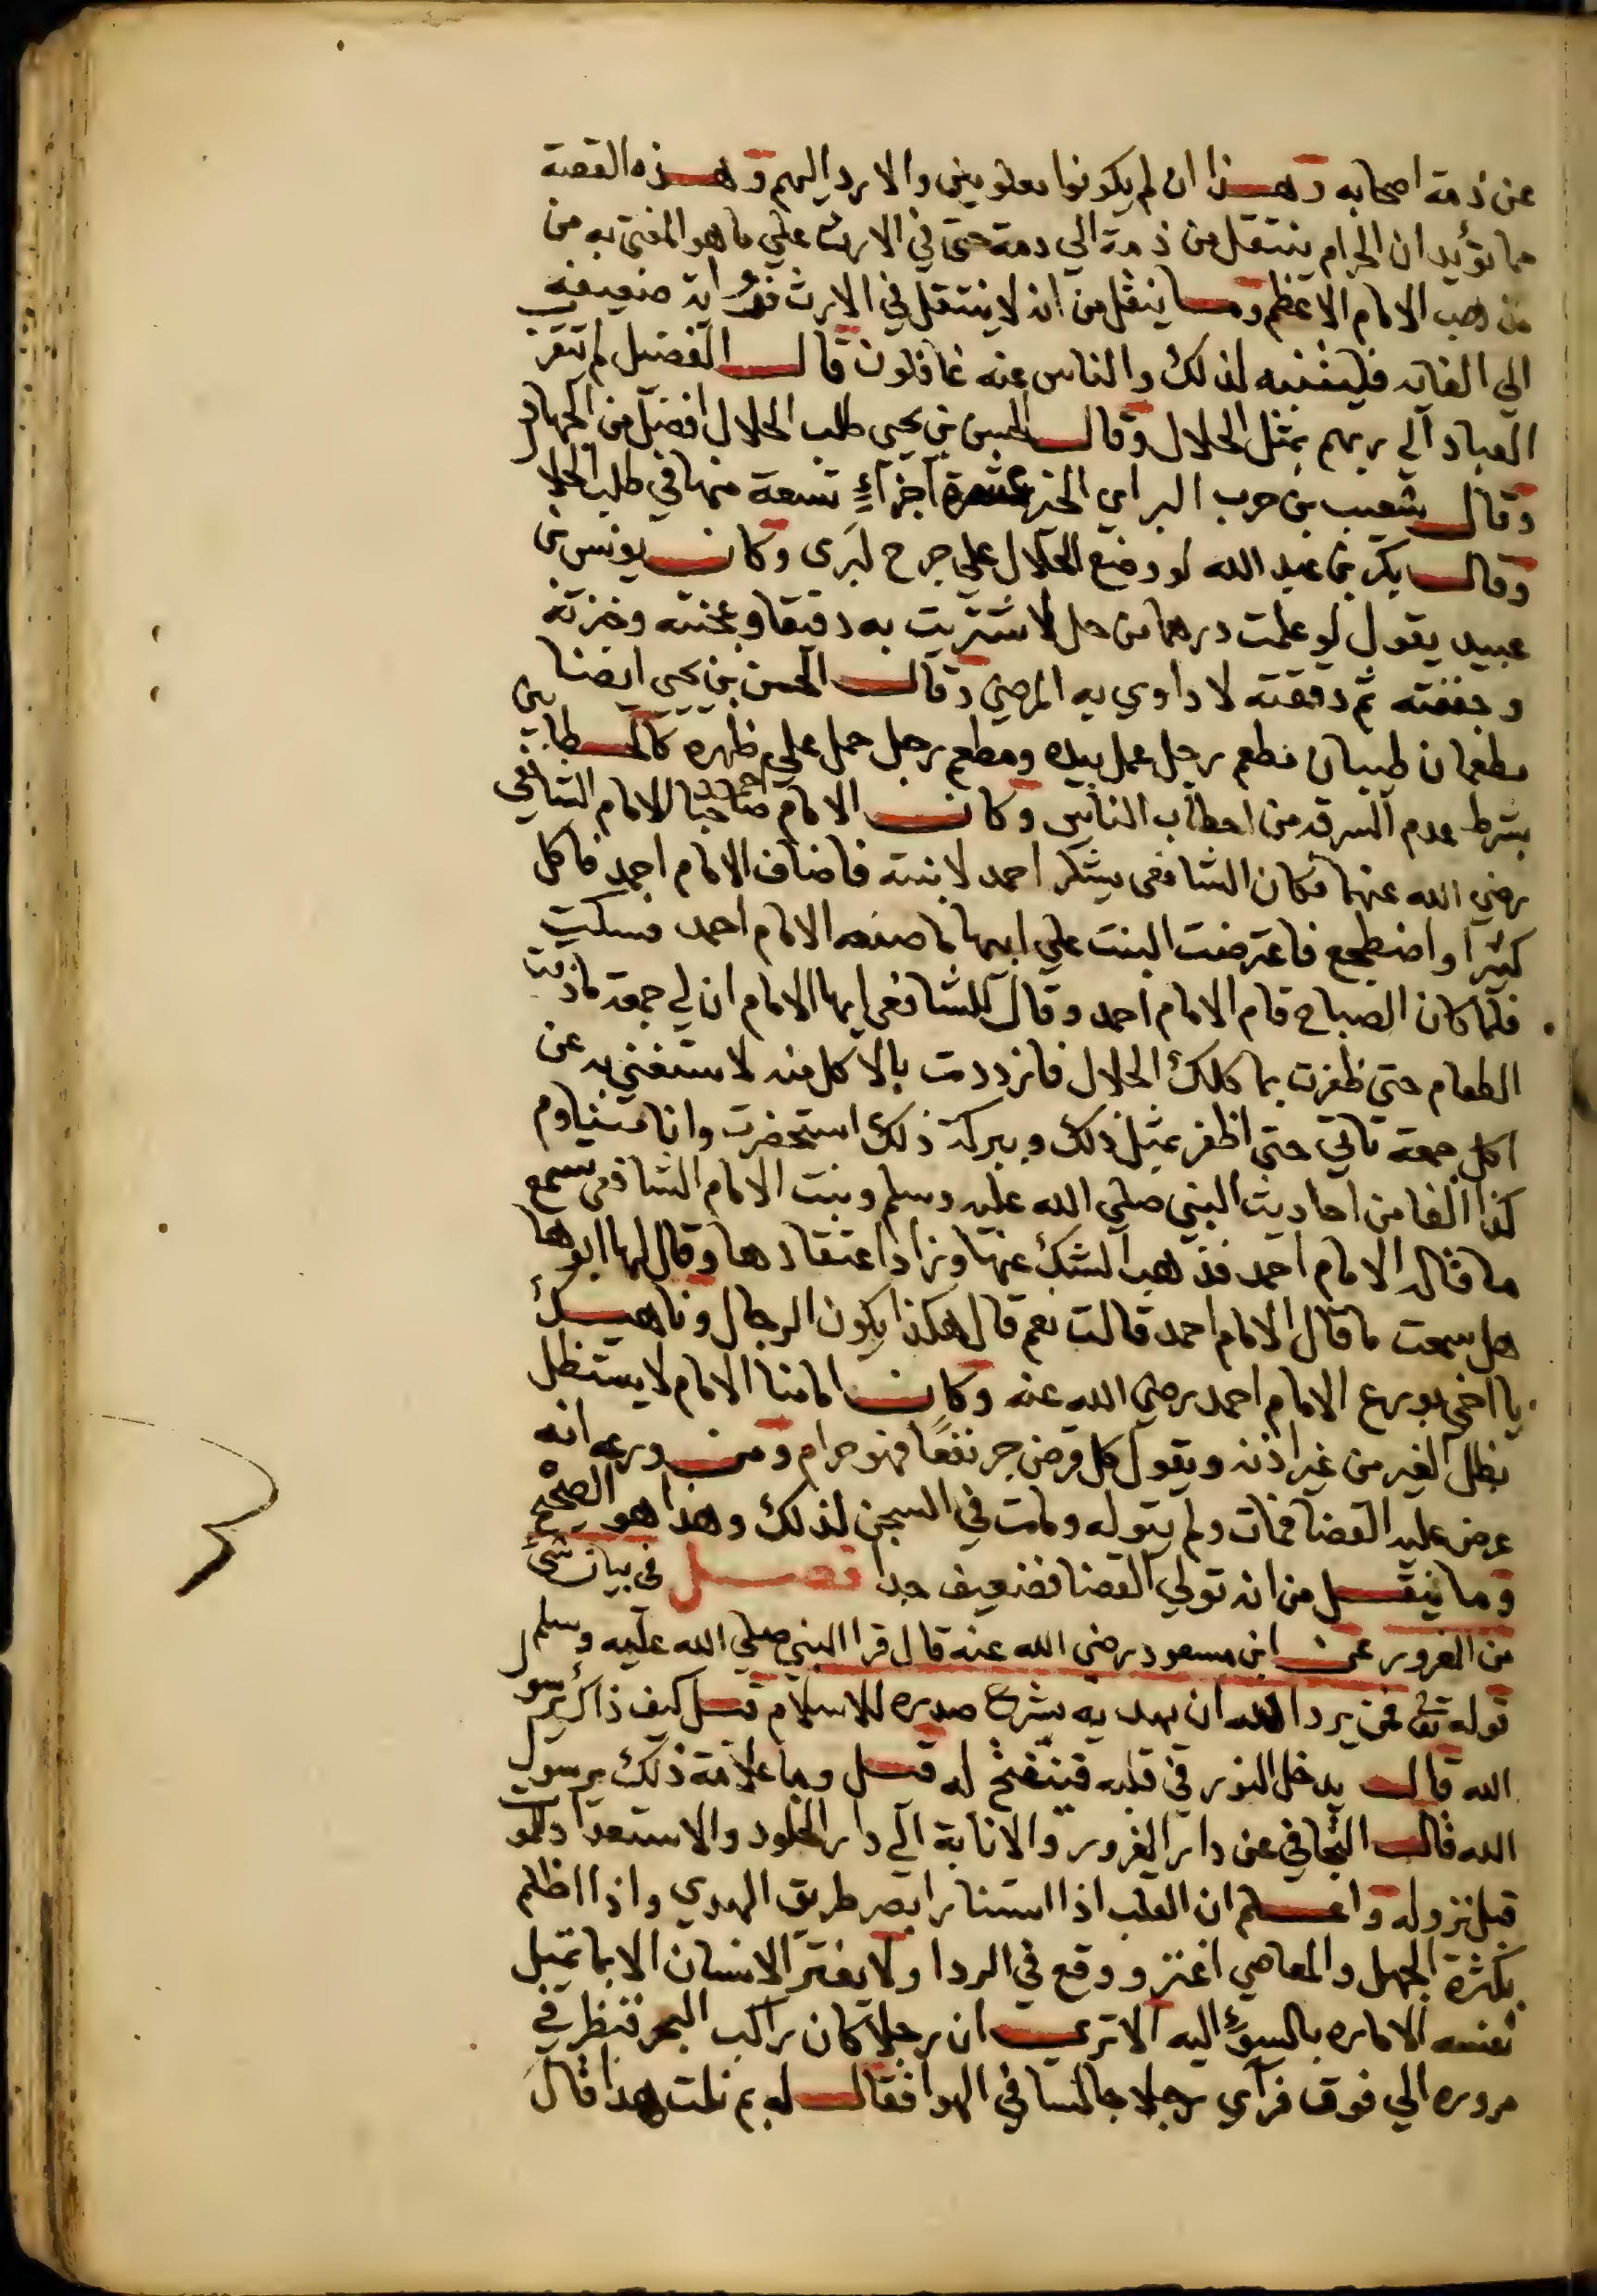 عن ذمة اصحابه وهذا ان لم يكونوا معلومين والا رد اليهم وهذه القصة
مما تؤيد ان الحرام ينتقل من ذمة الي ذمة حتى في الارث علي ما هو المفتى به من
مذهب الامام الاعظم وما ينقل من انه لا ينتقل في الارث فرواية ضعيفة
الي الغاية فليتنبه لذلك والناس عنه غافلون قال الفضيل لم تتقرب
العباد الي ربهم بمثل الحلال وقال الحسن بن يحيى طلب الحلال افضل من الجهاد
وقال شعيب بن حرب البراي الخير عشرة اجزاءٍ تسعة منها في طلب الحلال
وقال بكر بن عبد الله لو وضع الحلال علي جرح لبرى وكان يونس بن
عبيد يقول لو علمت درهما من حل لاشتريت به دقيقا وعجنته وخبزته
وجففته ثم دققته لاداوي به المرضي وقال الحسن بن يحيى ايضا
مطعمان طيبان مطعم رجل عمل بيده ومطعم رجل حمل علي ظهره كالحطابين
بشرط عدم السرقة من احطاب الناس وكان الامام احمد صاحبا للامام الشافعي
رضي الله عنهما فكان الشافعي يشكر احمد لابنته فاضاف الامام احمد فاكل
كثيرا واضطجع فاعترضت البنت علي ابيها ما صنعه الامام احمد فسكت
فلما كان الصباح قام الامام احمد وقال للشافعي ايها الامام ان لي جمعة ما ذقت
الطعام حتي ظفرت بماكلك الحلال فازددت بالاكل منه لاستغني به عن
اكل جمعة تاتي حتى اظفر بمثل ذلك وببركة ذلك استحضرت وانا متناوم
كذا الفا من احاديث النبي صلي الله عليه وسلم وبنت الامام الشافعي تسمع
ما قاله الامام احمد فذهب الشك عنها وزاد اعتقادها وقال لها ابوها
هل سمعت ما قال الامام احمد قالت نعم قال هكذا يكون الرجال وناهيك
يا اخي بورع الامام احمد رضي الله عنه وكان امامنا الامام لا يستظل
بظل الغير من غير اذنه ويقول كل قرض جر نفعًا فهو حرام ومن ورعه انه
عرض عليه القضا فمات ولم يتوله ومات في السجن لذلك وهذا هو الصحيح
وما ينقل من انه تولي القضا فضعيف جدا فصل في بيان شئ
من الغرور عن ابن مسعود رضي الله عنه قال قرا النبي صلي الله عليه وسلم
قوله تعالى فمن يرد الله ان يهديه يشرح صدره للاسلام قيل كيف ذاك يرسول
الله قال يدخل النور في قلبه فينفتح له قيل وما علامة ذلك يرسول
الله قال التجافي عن دار الغرور والانابة الي دار الخلود والاستعداد للموت
قبل نزوله واعلم ان القلب اذا استنار ابصر طريق الهدي واذا اظلم
بكثرة الجهل والمعاصي اغتر ووقع في الردا ولا يغتر الانسان الا بما تميل
نفسه الاماره بالسوءِ اليه الا تري ان رجلا كان راكب البحر فنظر في
مروره الي فوق فرآي رجلا جالسا في الهوا فقال له بم نلت هذا قال